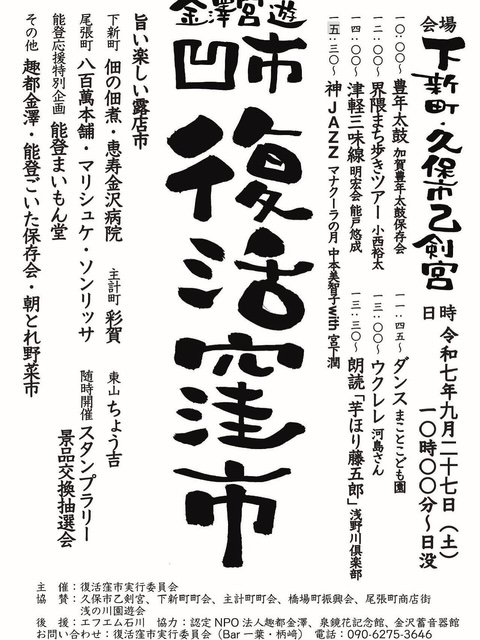 金澤宮遊
凹市
復活窪市
会場
下新町・久保市乙剣宮
日時 令和七年九月二十七日（土）
一〇時〇〇分～日没
一〇：〇〇～ 豊年太鼓 加賀豊年太鼓保存会
一一：四五～ ダンス まことこども園
一二：〇〇～ 界隈まち歩きツアー 小西裕太
一三：〇〇～ ウクレレ 河島さん
一四：〇〇～ 津軽三味線 明宏会 能戸悠成
一三：三〇～ 朗読「芋ほり藤五郎」浅野川倶楽部
一五：三〇～ 神JAZZ マナクーラの月 中本美智子with宮下潤
旨い楽しい露店市
下新町 佃の佃煮・恵寿金沢病院
主計町 彩賀
東山 ちょう吉
尾張町 八百萬本舗・マリシュケ・ソンリッサ
能登応援特別企画 能登まいもん堂
その他 趣都金澤・能登ごいた保存会・朝とれ野菜市
随時開催 スタンプラリー
景品交換抽選会
主　催：復活窪市実行委員会
協　賛：久保市乙剣宮、下新町町会、主計町町会、橋場町振興会、尾張町商店街
浅の川園遊会
後　援：エフエム石川　協力：認定NPO法人趣都金澤、泉鏡花記念館、金沢蓄音器館
お問い合わせ：復活窪市実行委員会（Bar一葉・柄崎）電話：090-6275-3646